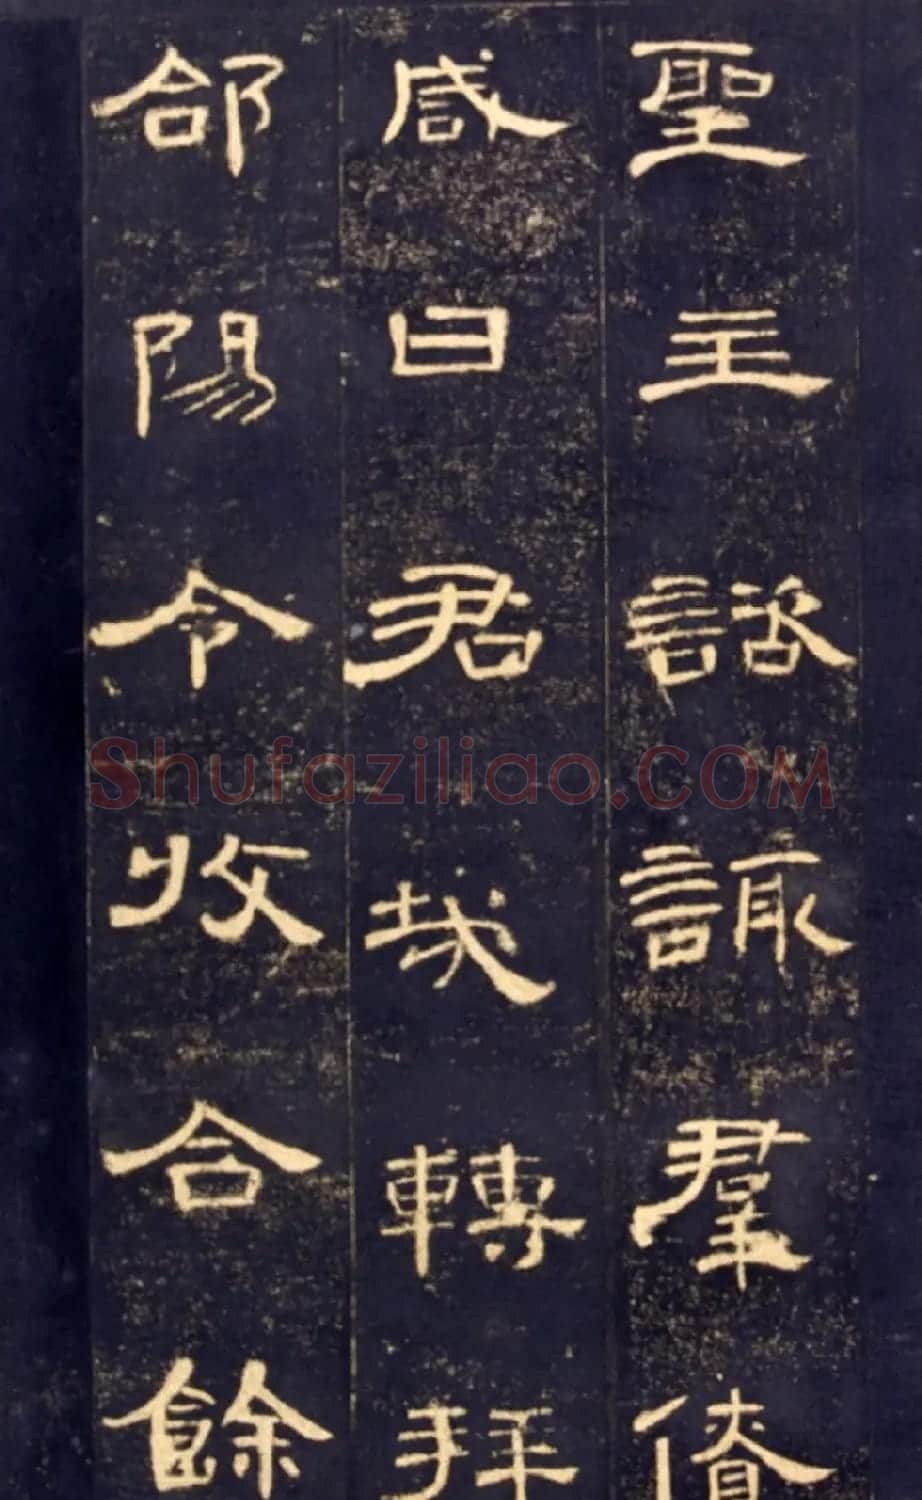 聖主諮諏羣僚
咸曰君哉轉拜
郃陽令收合餘
Shufaziliao.COM